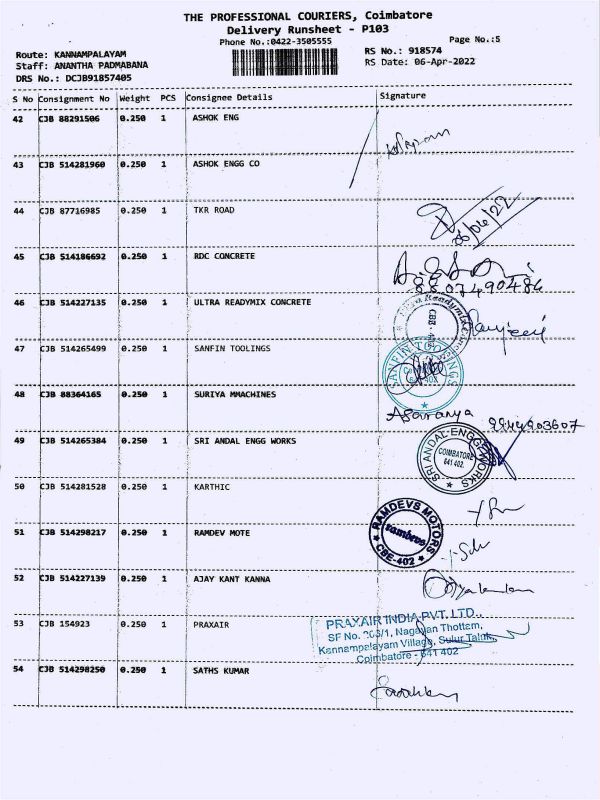 THE PROFESSIONAL COURIERS, Coimbatore
Delivery Runsheet - P103
Phone No.:0422-3505555
Page No.:5
Route: KANNAMPALAYAM
RS No.: 918574
Staff: ANANTHA PADMABANA
RS Date: 06-Apr-2022
DRS No.: DCJB91857405
S No Consignment No Weight PCS Consignee Details Signature
42 CJB 88291506 0.250 1 ASHOK ENG
43 CJB 514281960 0.250 1 ASHOK ENGG CO
44 CJB 87716985 0.250 1 TKR ROAD
06/04/22
45 CJB 514186692 0.250 1 RDC CONCRETE
8807490486
46 CJB 514227135 0.250 1 ULTRA READYMIX CONCRETE
47 CJB 514265499 0.250 1 SANFIN TOOLINGS
SANFIN TOOLINGS
48 CJB 88364165 0.250 1 SURIYA MMACHINES
9944903607
49 CJB 514265384 0.250 1 SRI ANDAL ENGG WORKS
SRI ANDAL ENGG WORKS
COIMBATORE
641 402.
50 CJB 514281528 0.250 1 KARTHIC
51 CJB 514298217 0.250 1 RAMDEV MOTE
RAMDEVS MOTORS
ramdevs
CBE-402
52 CJB 514227139 0.250 1 AJAY KANT KANNA
53 CJB 154923 0.250 1 PRAXAIR
PRAXAIR INDIA PVT. LTD.,
SF No. /1, Nagayan Thottam,
Kannampalayam Village, Sulur Taluk,
Coimbatore - 641 402
54 CJB 514298250 0.250 1 SATHS KUMAR